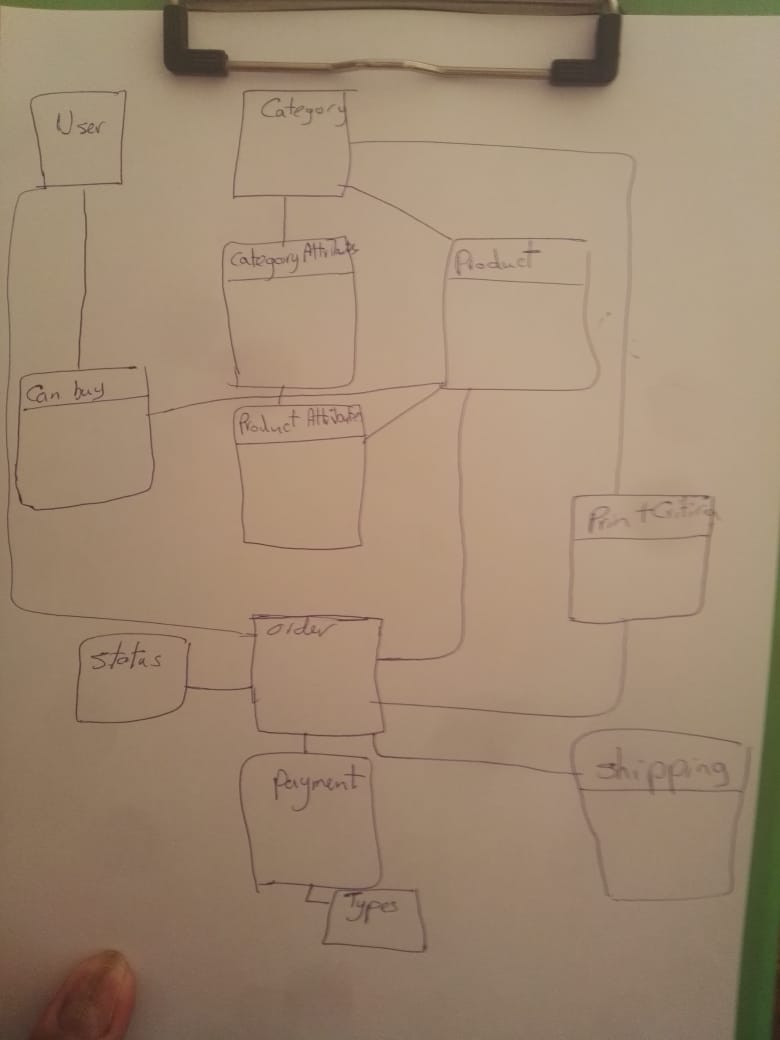 User
Category
Category Attributes
Product
Can buy
Product Attributes
Print
order
Status
Payment
shipping
Types